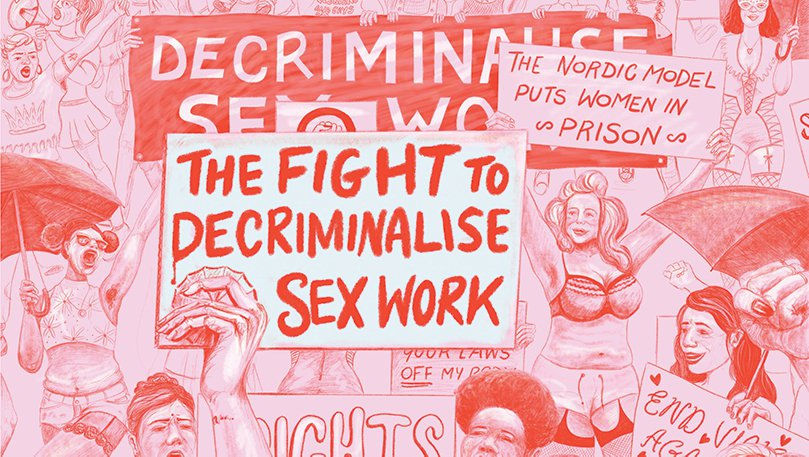 DECRIMINALISE
SEX WO
THE NORDIC MODEL
PUTS WOMEN IN
~ PRISON ~
THE FIGHT TO
DECRIMINALISE
SEX WORK
YOUR LAWS
OFF MY BODY
END